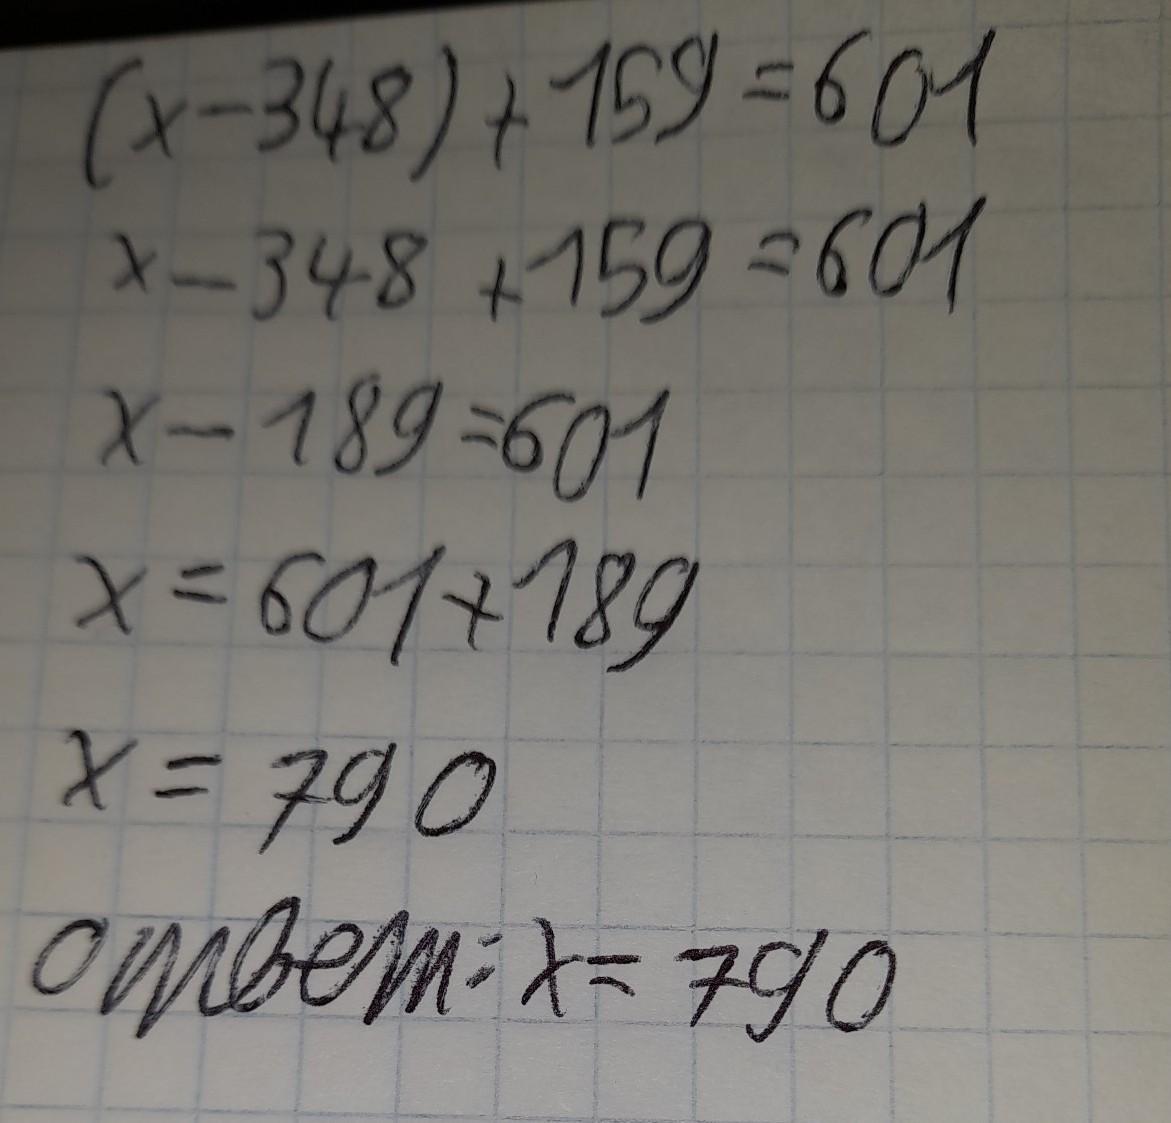 (x-348)+159=601
x-348+159=601
x-189=601
x=601+189
x=790
ответ: x=790